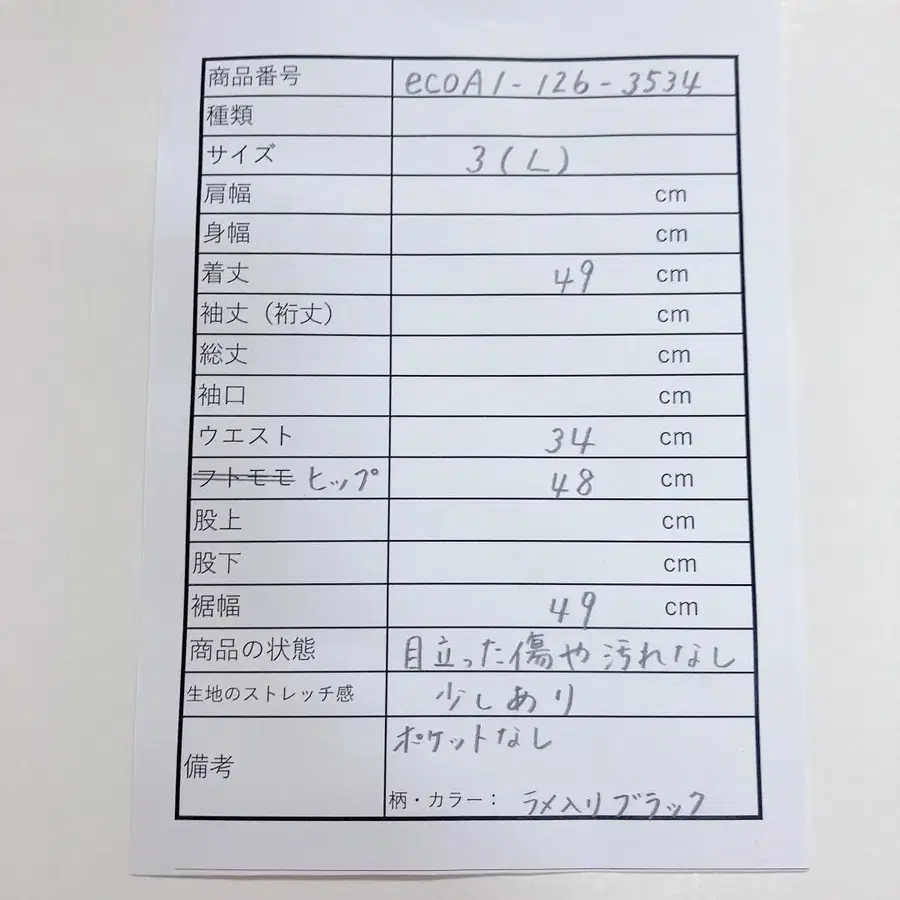 商品番号 ecoA1-126-3534
種類
サイズ 3(L)
肩幅 cm
身幅 cm
着丈 49 cm
袖丈（裄丈） cm
総丈 cm
袖口 cm
ウエスト 34 cm
フトモモ ヒップ 48 cm
股上 cm
股下 cm
裾幅 49 cm
商品の状態 目立った傷や汚れなし
生地のストレッチ感 少しあり
備考 ポケットなし
柄・カラー： ラメ入りブラック